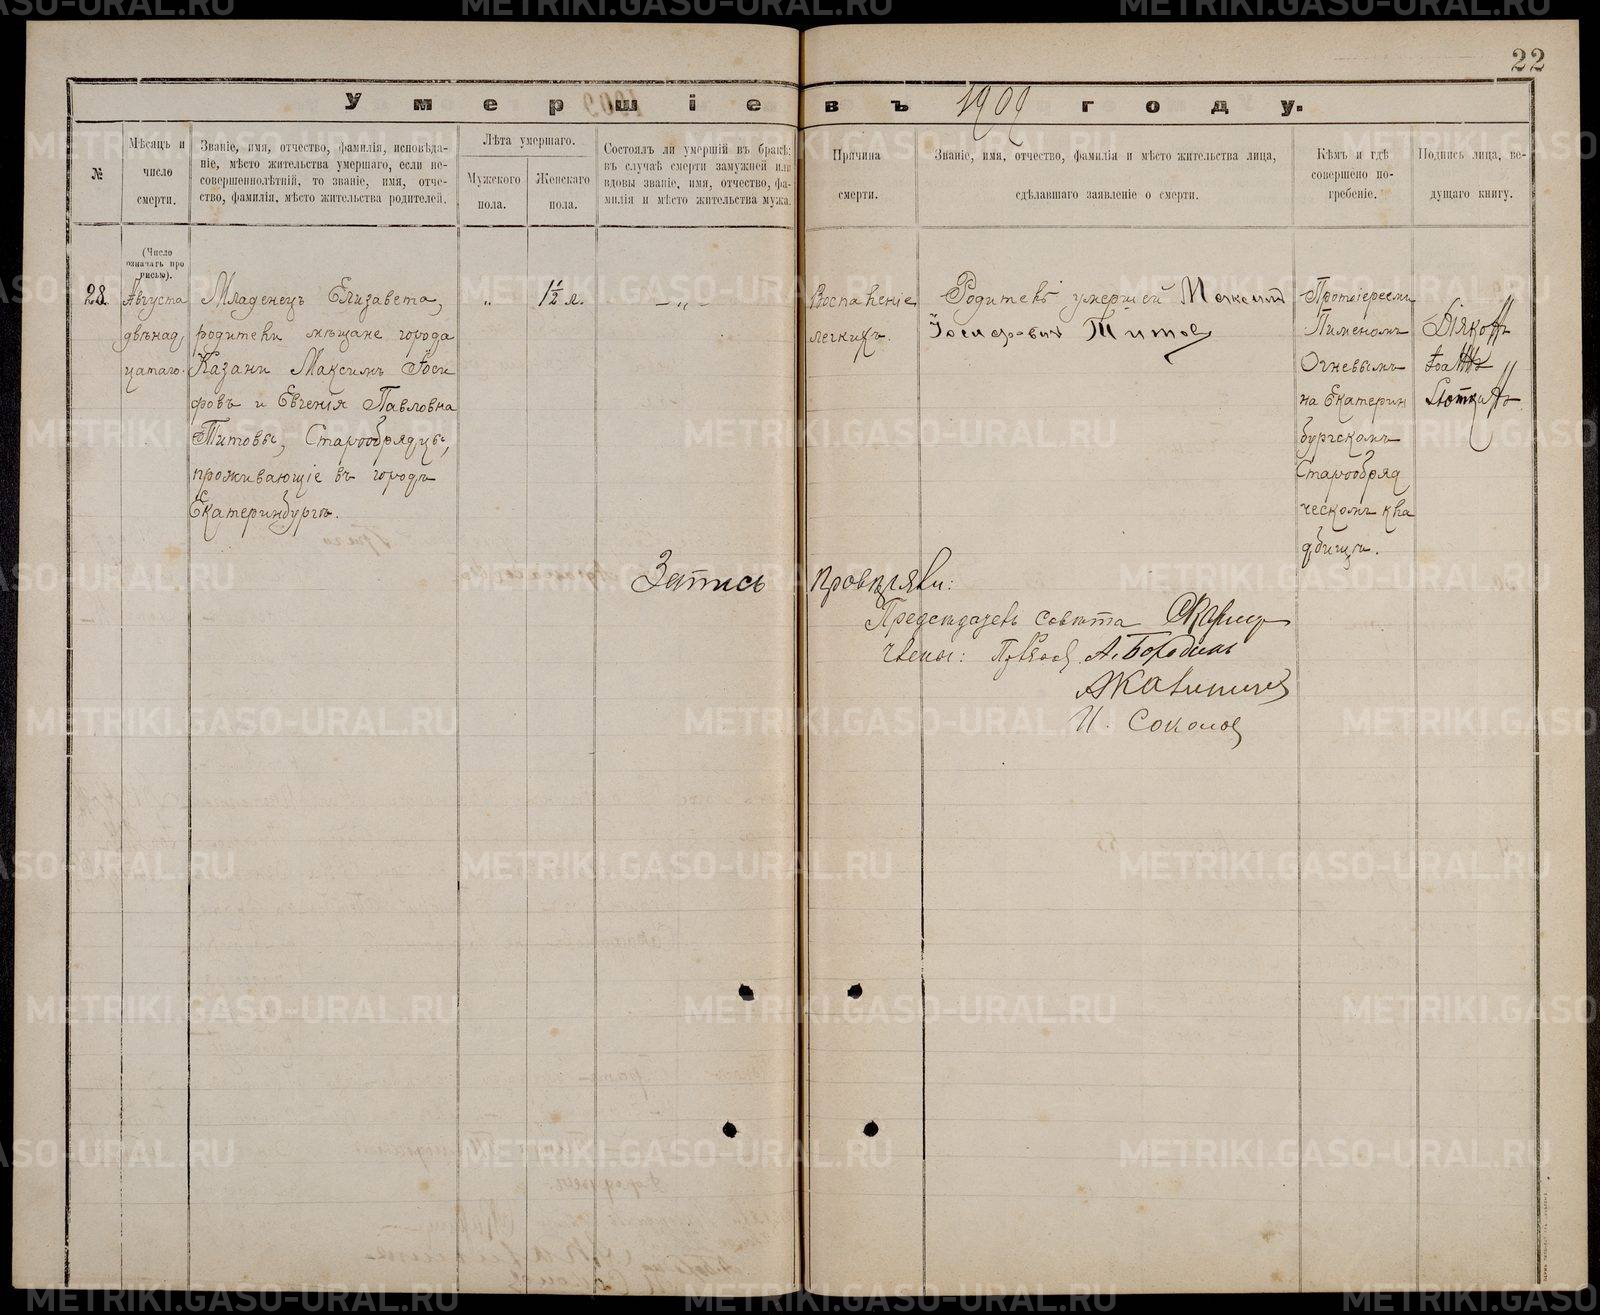 22
Умершіе въ 1909 году.
№
Мѣсяцъ и
число
смерти.
Званіе, имя, отчество, фамилія, исповѣда-
ніе, мѣсто жительства умершаго, если не-
совершеннолѣтній, то званіе, имя, отче-
ство, фамилія, мѣсто жительства родителей.
Лѣта умершаго.
Мужского
пола.
Женскаго
пола.
Состоялъ ли умершій въ бракѣ;
въ случаѣ смерти замужней или
вдовы званіе, имя, отчество, фа-
милія и мѣсто жительства мужа.
Причина
смерти.
Званіе, имя, отчество, фамилія и мѣсто жительства лица,
сдѣлавшаго заявленіе о смерти.
Кѣмъ и гдѣ
совершено по-
гребеніе.
Подпись лица, ве-
дущаго книгу.
(Число
означать про
писью).
28.
Августа
двѣнад,
цатаго.
Младенецъ Елизавета,
родители мѣщане города
Казани Максимъ Іоси
фовъ и Евгенія Павловна
Титовы, Старообрядцы,
проживающіе въ городѣ
Екатеринбургѣ.
"
1½ л.
– „ –
Воспаленіе
легкихъ.
Родитель умершей Максим
Іосифович Титов
Протоіереемъ
Пименомъ
Огневымъ
на Екатерин
бургскомъ
Старообряд
ческомъ кла
дбищѣ.
Діяконъ
Іоаннъ
Запись провѣряли:
Предсѣдатель совѣта
члены: А. Бородинъ
И. Соколов
METRIKI.GASO-URAL.RU